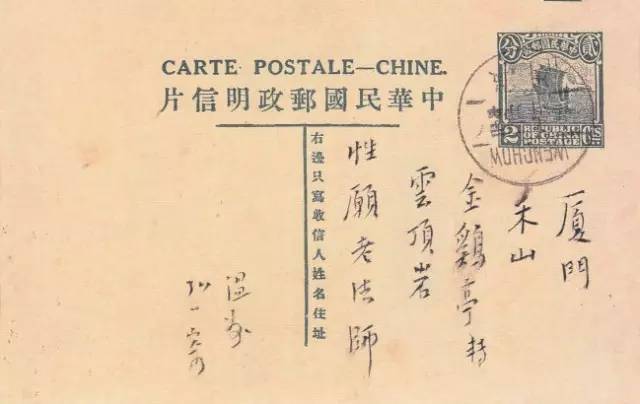 CARTE POSTALE—CHINE.
中華民國郵政明信片
貳分
2 REPUBLIC OF CHINA POSTAGE CTS.
WENCHOW
廈門
禾山
金鷄亭轉
雲頂岩
性願老法師
右邊只寫收信人姓名住址